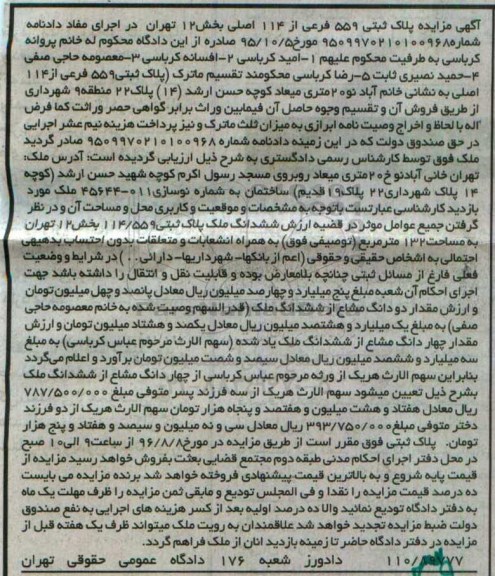 آگهی مزایده پلاک ثبتی ۵۵۹ فرعی از ۱۱۴ اصلی بخش۱۲ تهران در اجرای مفاد دادنامه
شماره۹۵۰۹۹۷۰۲۱۰۱۰۰۹۶۸ مورخ۹۵/۱۰/۵ صادره از این دادگاه محکوم له خانم پروانه
کرباسی به طرفیت محکوم علیهم ۱-امید کرباسی ۲-افسانه کرباسی ۳-معصومه حاجی صفی
۴-حمید نصیری ثابت ۵-رضا کرباسی محکومند تقسیم ماترک (پلاک ثبتی۵۵۹ فرعی از۱۱۴
اصلی به نشانی خانم آباد نو۲۰متری میعاد کوچه حسن ارشد (۱۴) پلاک۲۲ منطقه۹ شهرداری
از طریق فروش آن و تقسیم وجوه حاصل آن فیمابین وراث برابر گواهی حصر وراثت کما فرض
اله با لحاظ و اخراج وصیت نامه ابرازی به میزان ثلث ماترک و نیز پرداخت هزینه نیم عشر اجرایی
در حق صندوق دولت که در این زمینه دادنامه شماره ۹۵۰۹۹۷۰۲۱۰۱۰۰۹۶۸ صادر گردید
ملک فوق توسط کارشناس رسمی دادگستری به شرح ذیل ارزیابی گردیده است: آدرس ملک:
تهران خانی آبادنو خ۲۰متری میعاد روبروی مسجد رسول اکرم کوچه شهید حسن ارشد (کوچه
۱۴ پلاک شهرداری۲۲ پلاک۱۹قدیم) ساختمان به شماره نوسازی۰۱۱-۴۵۶۴۴ ملک مورد
بازدید کارشناسی عبارتست باتوجه به مشخصات و موقعیت و کاربری محل و مساحت آن و در نظر
گرفتن جمیع عوامل موثر در قضیه ارزش ششدانگ ملک پلاک ثبتی۱۱۴/۵۵۹ بخش۱۲ تهران
به مساحت۱۳۲ مترمربع (توصیفی فوق) به همراه انشعابات و متعلقات بدون احتساب بدهیهی
احتمالی به اشخاص حقیقی و حقوقی (اعم از بانکها- شهرداریها- دارائی...) در شرایط و وضعیت
فعلی فارغ از مسائل ثبتی چنانچه بلامعارض بوده و قابلیت نقل و انتقال را داشته باشد جهت
اجرای احکام آن شعبه مبلغ پنج میلیارد و چهارصد میلیون ریال معادل پانصد و چهل میلیون تومان
و ارزش مقدار دو دانگ مشاع از ششدانگ ملک (قدر السهم وصیت شده به خانم معصومه حاجی
صفی) به مبلغ یک میلیارد و هشتصد میلیون ریال معادل یکصد و هشتاد میلیون تومان و ارزش
مقدار چهار دانگ مشاع از ششدانگ ملک یاد شده (سهم الارث مرحوم عباس کرباسی) به مبلغ
سه میلیارد و ششصد میلیون ریال معادل سیصد و شصت میلیون تومان برآورد و اعلام می‌گردد
بنابراین سهم الارث هریک از ورثه مرحوم عباس کرباسی از چهار دانگ مشاع از ششدانگ ملک
بشرح ذیل تعیین میشود سهم الارث هریک از سه فرزند پسر متوفی مبلغ ۷۸۷/۵۰۰/۰۰۰
ریال معادل هفتاد و هشت میلیون و هفتصد و پنجاه هزار تومان سهم الارث هریک از دو فرزند
دختر متوفی مبلغ۳۹۳/۷۵۰/۰۰۰ ریال معادل سی و نه میلیون و سیصد و هفتاد و پنج هزار
تومان. پلاک ثبتی فوق مقرر است از طریق مزایده در مورخ۹۶/۸/۸ از ساعت۹ الی۱۰ صبح
در محل دفتر اجرای احکام مدنی طبقه دوم مجتمع قضایی بعثت بفروش خواهد رسید مزایده از
قیمت پایه شروع و به بالاترین قیمت پیشنهادی فروخته خواهد شد برنده مزایده می بایست
ده درصد قیمت مزایده را نقدا و فی المجلس تودیع و مابقی ثمن مزایده را ظرف مهلت یک ماه
به دفتر دادگاه تودیع نمائید والا ده درصد اولیه بعد از کسر هزینه های اجرایی به نفع صندوق
دولت ضبط مزایده تجدید خواهد شد علاقمندان به رویت ملک میتواند ظرف یک هفته قبل از
مزایده در دفتر دادگاه حاضر تا زمینه بازدید انان از ملک فراهم گردد.
دادورز شعبه ۱۷۶ دادگاه عمومی حقوقی تهران